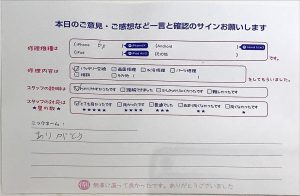 本日のご意見・ご感想など一言と確認のサインお願いします
修理機種は iPhone 8 iPad Android その他 です。
修理内容は バッテリー交換 画面修理 水没修理 パーツ修理 相談 その他 をしてもらいました。
スタッフの説明は わかりやすかったです 理解できました 少しわかりにくかったです 難しかったです
スタッフの対応は とても良かったです 良かったです 普通でした あまり良くなかったです 良くなかったです
★の数 ★★★★★ ★★★★ ★★★ ★★ ★
ニックネーム:
ありがとう
無事に直って良かったです。ありがとうございました